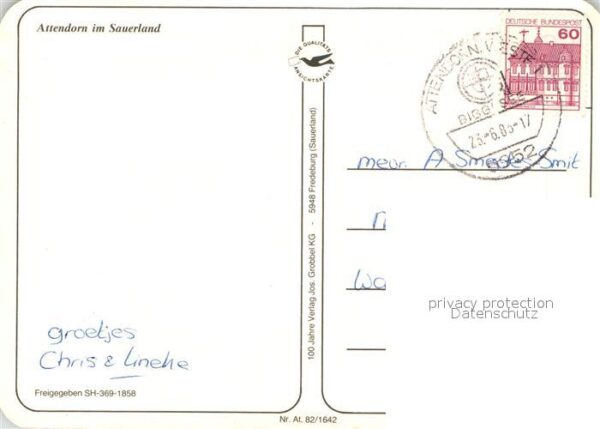 Attendorn im Sauerland
DIE QUALITÄTS
ANSICHTSKARTE
DEUTSCHE BUNDESPOST
60
ATTENDORN, WESTF
BIGGESEE
-6.85-17
5952
mevr. A Smit
100 Jahre Verlag Jos. Grobbel KG - 5948 Fredeburg (Sauerland)
privacy protection
Datenschutz
groetjes
Chris & Lineke
Freigegeben SH-369-1858
Nr. At. 82/1642